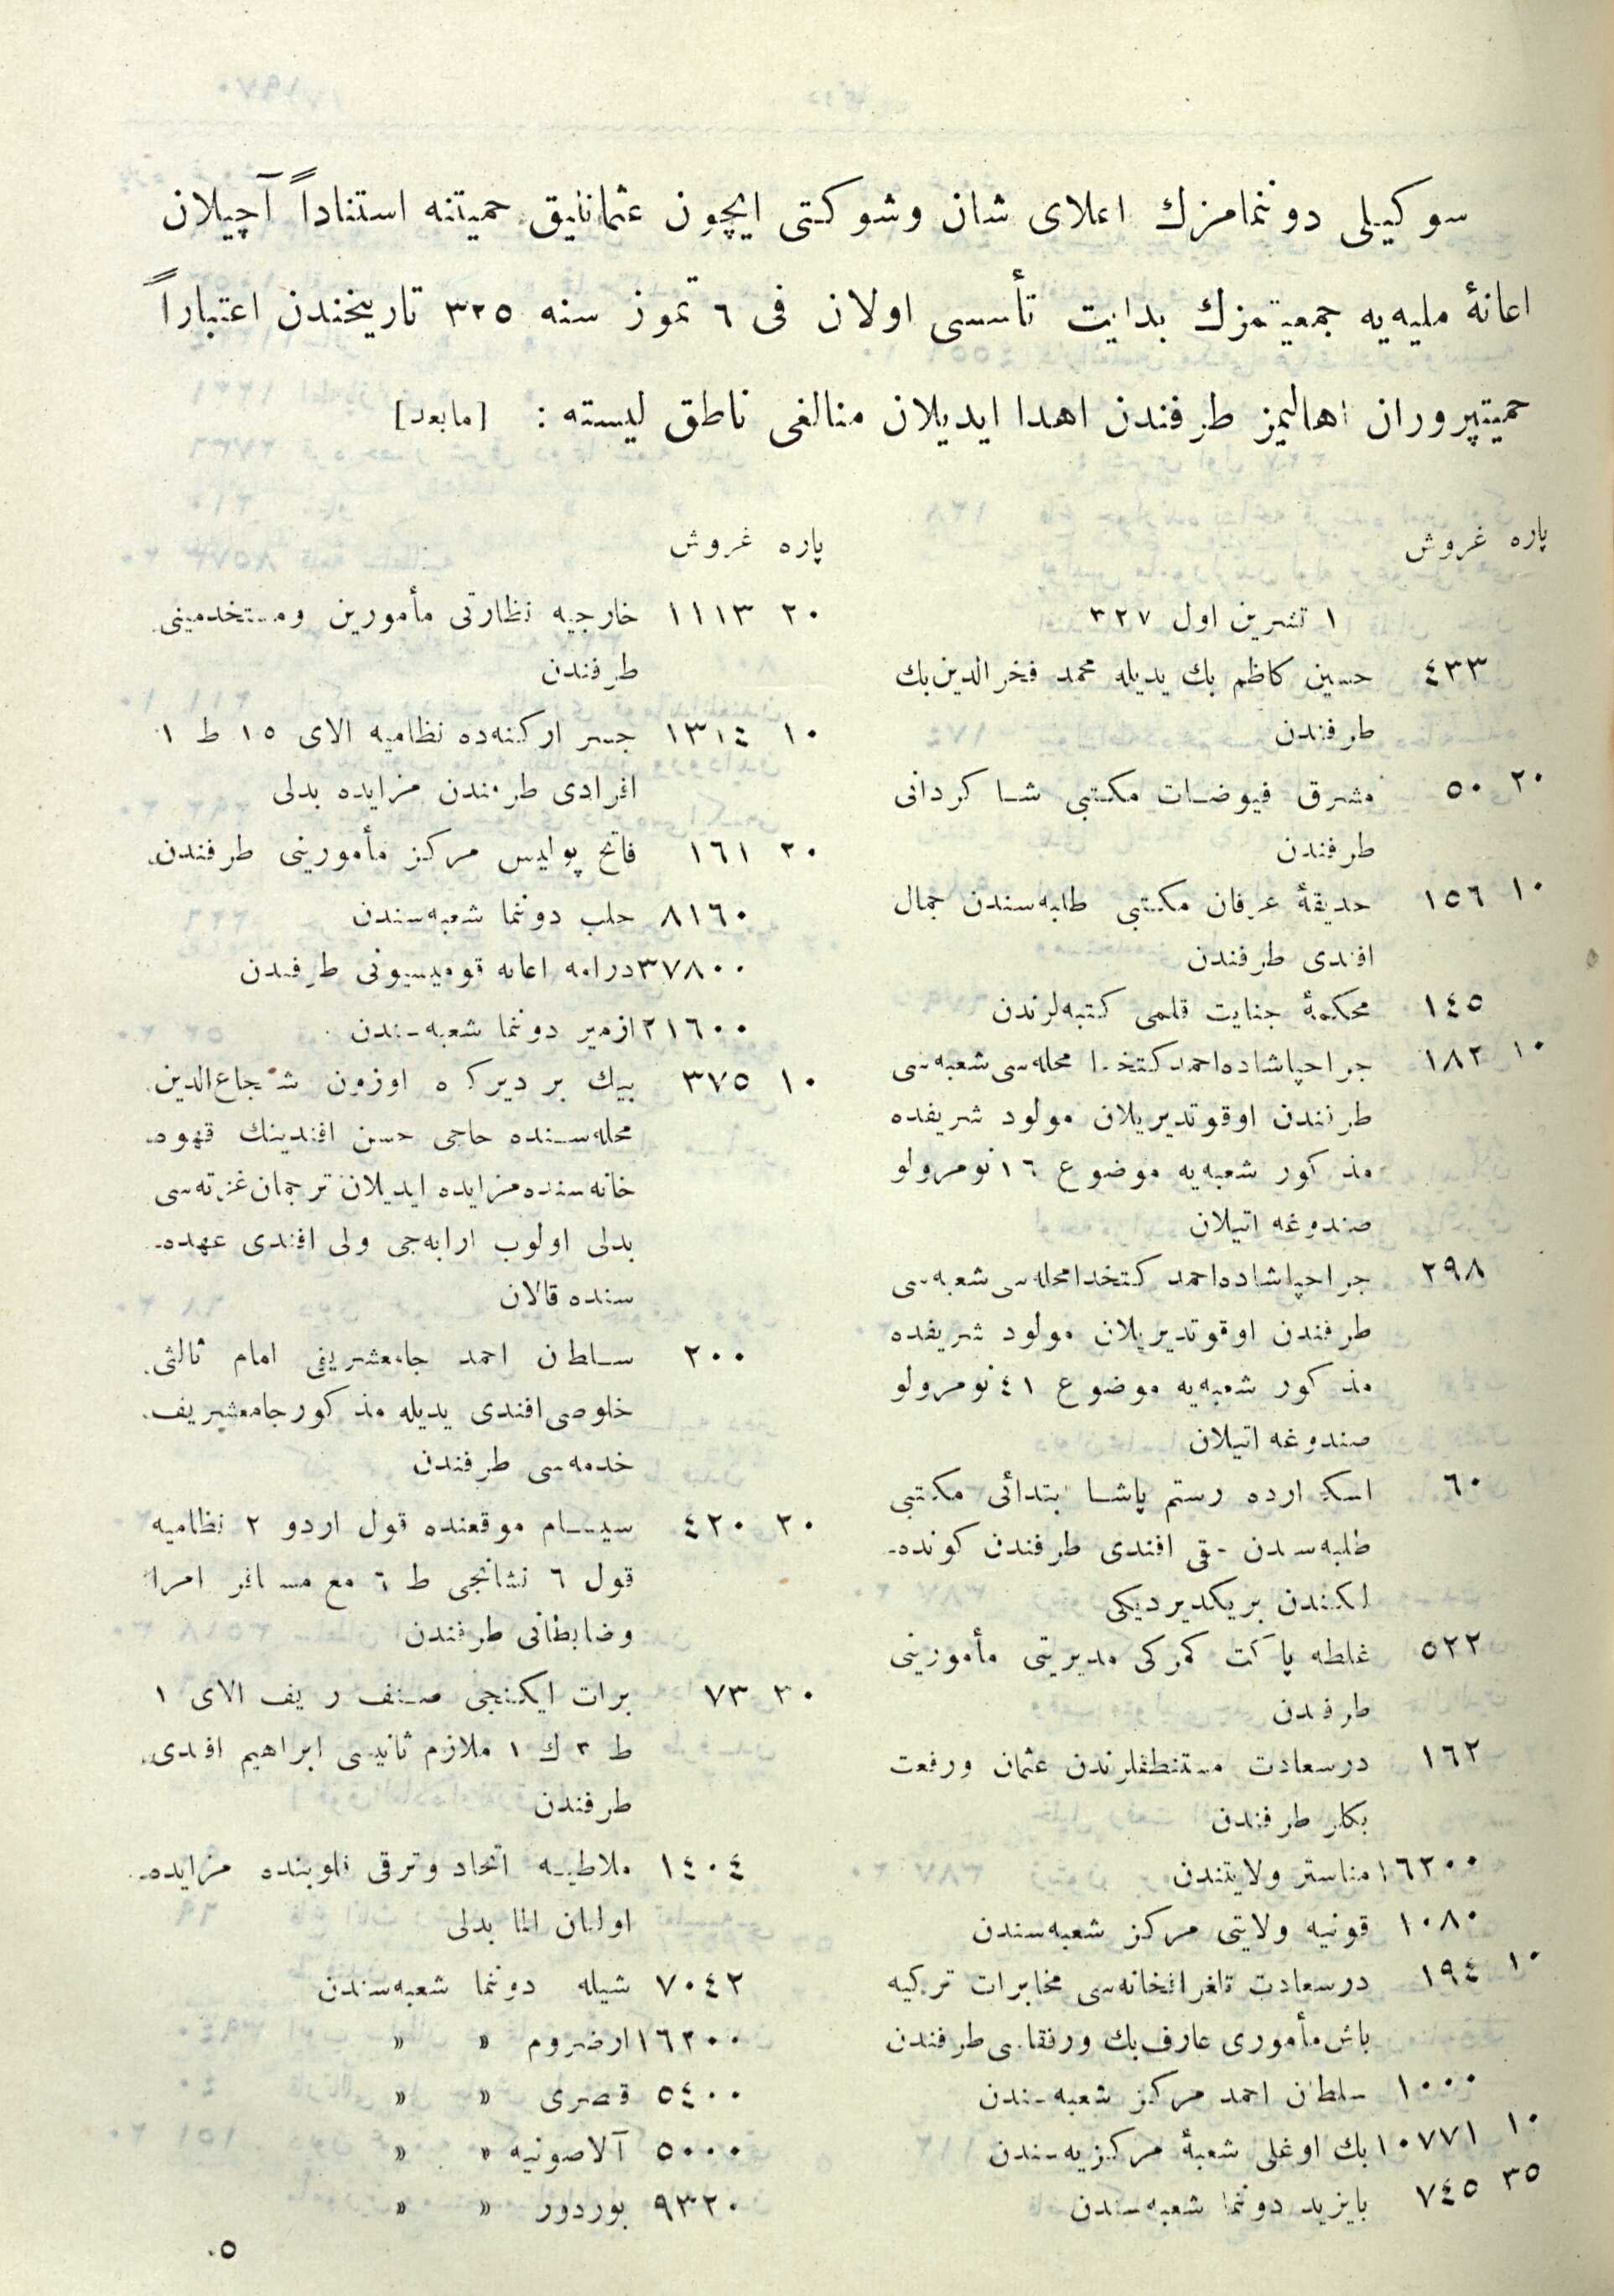 سوكيلی دوننمامزك اعلای شان وشوكتی ايچون عثمانليق حميتنه استناداً آچيلان
اعانهٔ مليه‌يه جمعيتمزك بدايت تأسسی اولان فی ٦ تموز سنه ٣٢٥ تاريخندن اعتباراً
حميتپروران اهاليمز طرفندن اهدا ايديلان مبالغی ناطق ليسته : [مابعد]
پاره غروش
١ تشرين اول ٣٢٧
٤٣٣ حسين كاظم بك يديله محمد فخرالدين بك
طرفندن
٢٠ ٥٠ مشرق فيوضات مكتبی شاكردانی
طرفندن
١٠ ١٥٦ حديقهٔ عرفان مكتبی طلبه‌سندن جمال
افندی طرفندن
١٤٥ محكمهٔ جنايت قلمی كتبه‌لرندن
١٠ ١٨٢ جراحپاشاده احمد كتخدا محله‌سی شعبه‌سی
طرفندن اوقوتديريلان مولود شريفده
مذكور شعبه‌يه موضوع ١٦ نومرولو
صندوغه اتيلان
٢٩٨ جراحپاشاده احمد كتخدا محله‌سی شعبه‌سی
طرفندن اوقوتديريلان مولود شريفده
مذكور شعبه‌يه موضوع ٤١ نومرولو
صندوغه اتيلان
٦٠ اسكدارده رستم پاشا ابتدائی مكتبی
طلبه‌سندن حقی افندی طرفندن كونده-
لكندن بريكديرديكی
٥٢٢ غلطه پاكت كمركی مديريتی مأمورينی
طرفندن
١٦٢ درسعادت مستنطقلرندن عثمان ورفعت
بكلر طرفندن
١٦٢٠٠ مناستر ولايتندن
١٠٨٠ قونيه ولايتی مركز شعبه‌سندن
١٠ ١٩٤ درسعادت تلغرافخانه‌سی مخابرات تركيه
باش مأموری عارف بك ورفقاسی طرفندن
١٠٠٠ سلطان احمد مركز شعبه‌سندن
١٠ ١٠٧٧١ بك اوغلی شعبهٔ مركزيه‌سندن
٣٥ ٧٤٥ بايزيد دوننما شعبه‌سندن
پاره غروش
٢٠ ١١١٣ خارجيه نظارتی مأمورين ومستخدمينی
طرفندن
١٠ ١٣١٤ جسر اركنه‌ده نظاميه الای ١٥ ط ١
افرادی طرفندن مزايده بدلی
٢٠ ١٦١ فاتح پوليس مركز مأمورينی طرفندن
٨١٦٠ حلب دوننما شعبه‌سندن
٣٧٨٠٠ درامه اعانه قوميسيونی طرفندن
٢١٦٠٠ ازمير دوننما شعبه‌سندن
١٠ ٣٧٥ بيك بر ديركده اوزون شجاع‌الدين
محله‌سنده حاجی حسن افندينك قهوه-
خانه‌سنده مزايده ايديلان ترجمان غزته‌سی
بدلی اولوب ارابه‌جی ولی افندی عهده-
سنده قالان
٢٠٠ سلطان احمد جامعشريفی امام ثالثی
خلوصی افندی يديله مذكور جامعشريف
خدمه‌سی طرفندن
٢٠ ٤٢٠ سيسام موقعنده قول اردو ٢ نظاميه
قول ٦ نشانجی ط ٦ مع مسافر امرا
وضابطانی طرفندن
٣٠ ٧٣ برات ايكنجی صنف رديف الای ١
ط ٣ ك ١ ملازم ثانيسی ابراهيم افندی
طرفندن
١٤٠٤ ملاطيه اتحاد وترقی قلوبنده مزايده-
اولنان الما بدلی
٧٠٤٢ شيله دوننما شعبه‌سندن
١٦٢٠٠ ارضروم » »
٥٤٠٠ قصری » »
٥٠٠٠ آلاصونيه » »
٩٣٢٠ بوردور » »
٥٠